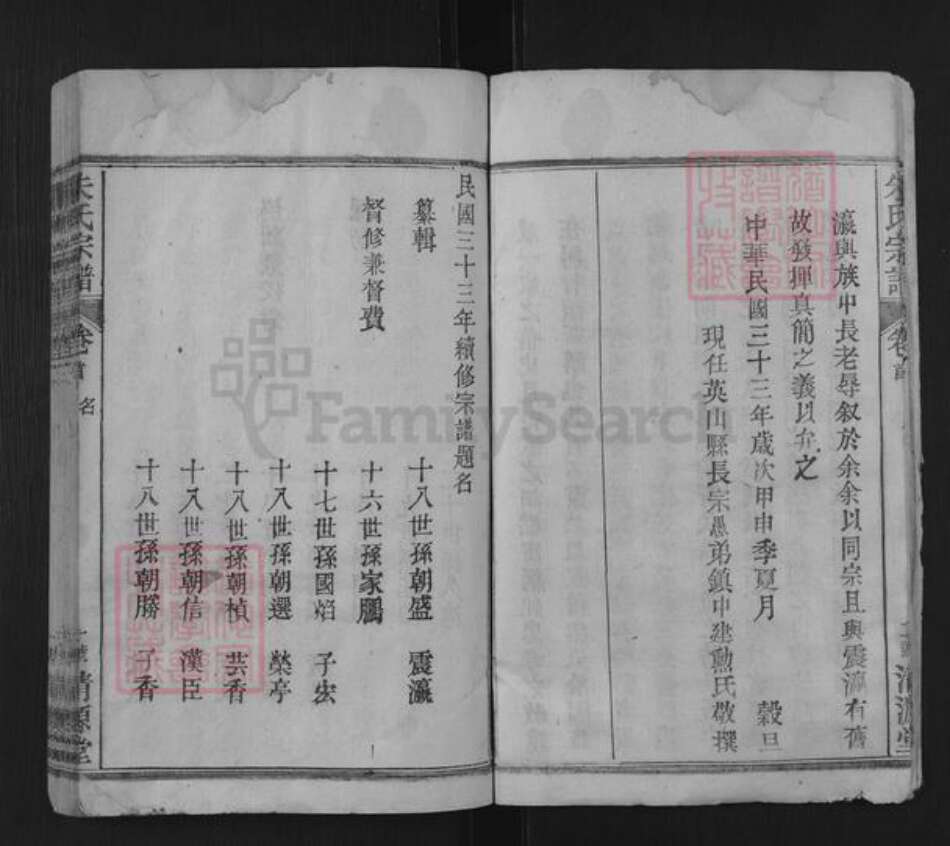 瀛與族中長老尋叙於余余以同宗且與震瀛有舊
故發揮真簡之義以弁之
中華民國三十三年歲次甲申季夏月 穀旦
現任英山縣長宗愚弟鎮中建勳氏敬撰
朱氏宗譜 卷首 清源堂
民國三十三年續修宗譜題名
纂輯 十八世孫朝盛 震瀛
督修兼督費 十六世孫家鵬
十七世孫國焰 子宏
十八世孫朝選 榮亭
十八世孫朝楨 芸香
十八世孫朝信 漢臣
十八世孫朝勝 子香
朱氏宗譜 卷首 名 清源堂
FamilySearch